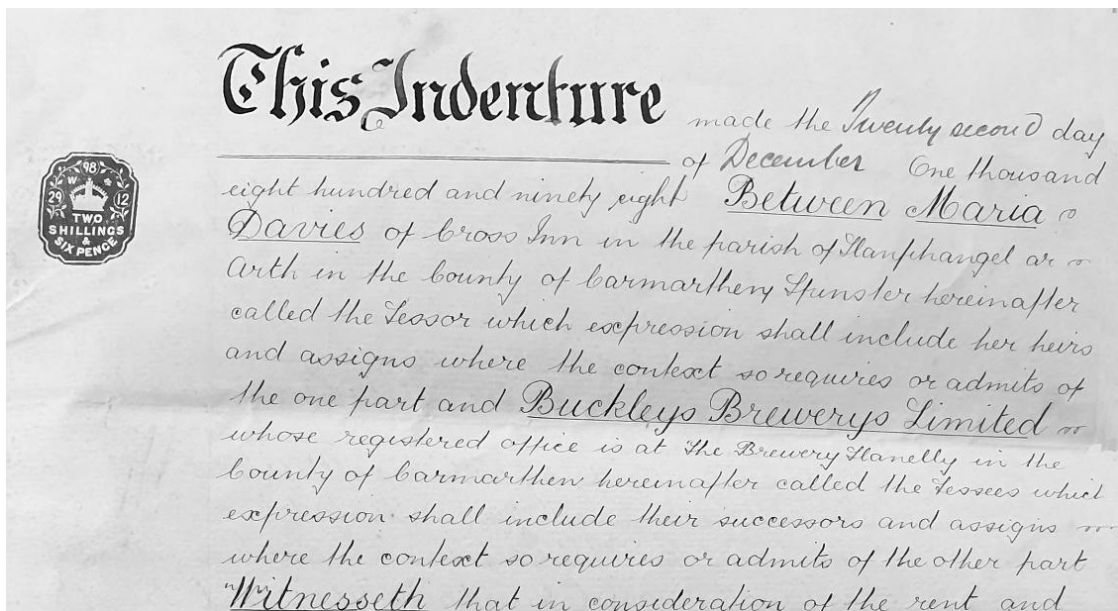 This Indenture made the Twenty second day
of December One thousand
eight hundred and ninety eight Between Maria
Davies of Cross Inn in the parish of Llanfihangel ar
Arth in the County of Carmarthen Spinster hereinafter
called the Lessor which expression shall include her heirs
and assigns where the context so requires or admits of
the one part and Buckleys Brewerys Limited
whose registered office is at The Brewery Llanelly in the
County of Carmarthen hereinafter called the Lessees which
expression shall include their successors and assigns
where the context so requires or admits of the other part
Witnesseth that in consideration of the rent and
98
W
29 12
TWO
SHILLINGS
&
SIX PENCE